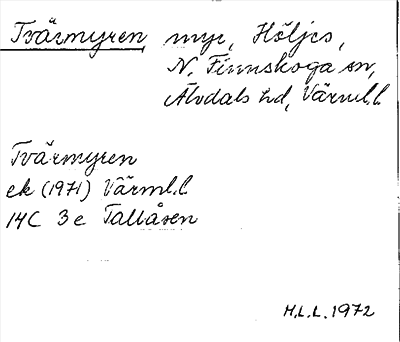 Tvärmyren, myr, Höljes,
N. Finnskoga sn,
Älvdals hd, Värml.l.
Tvärmyren
ek (1971) Värml.l.
14C 3e Tallåsen
H.L.L. 1972